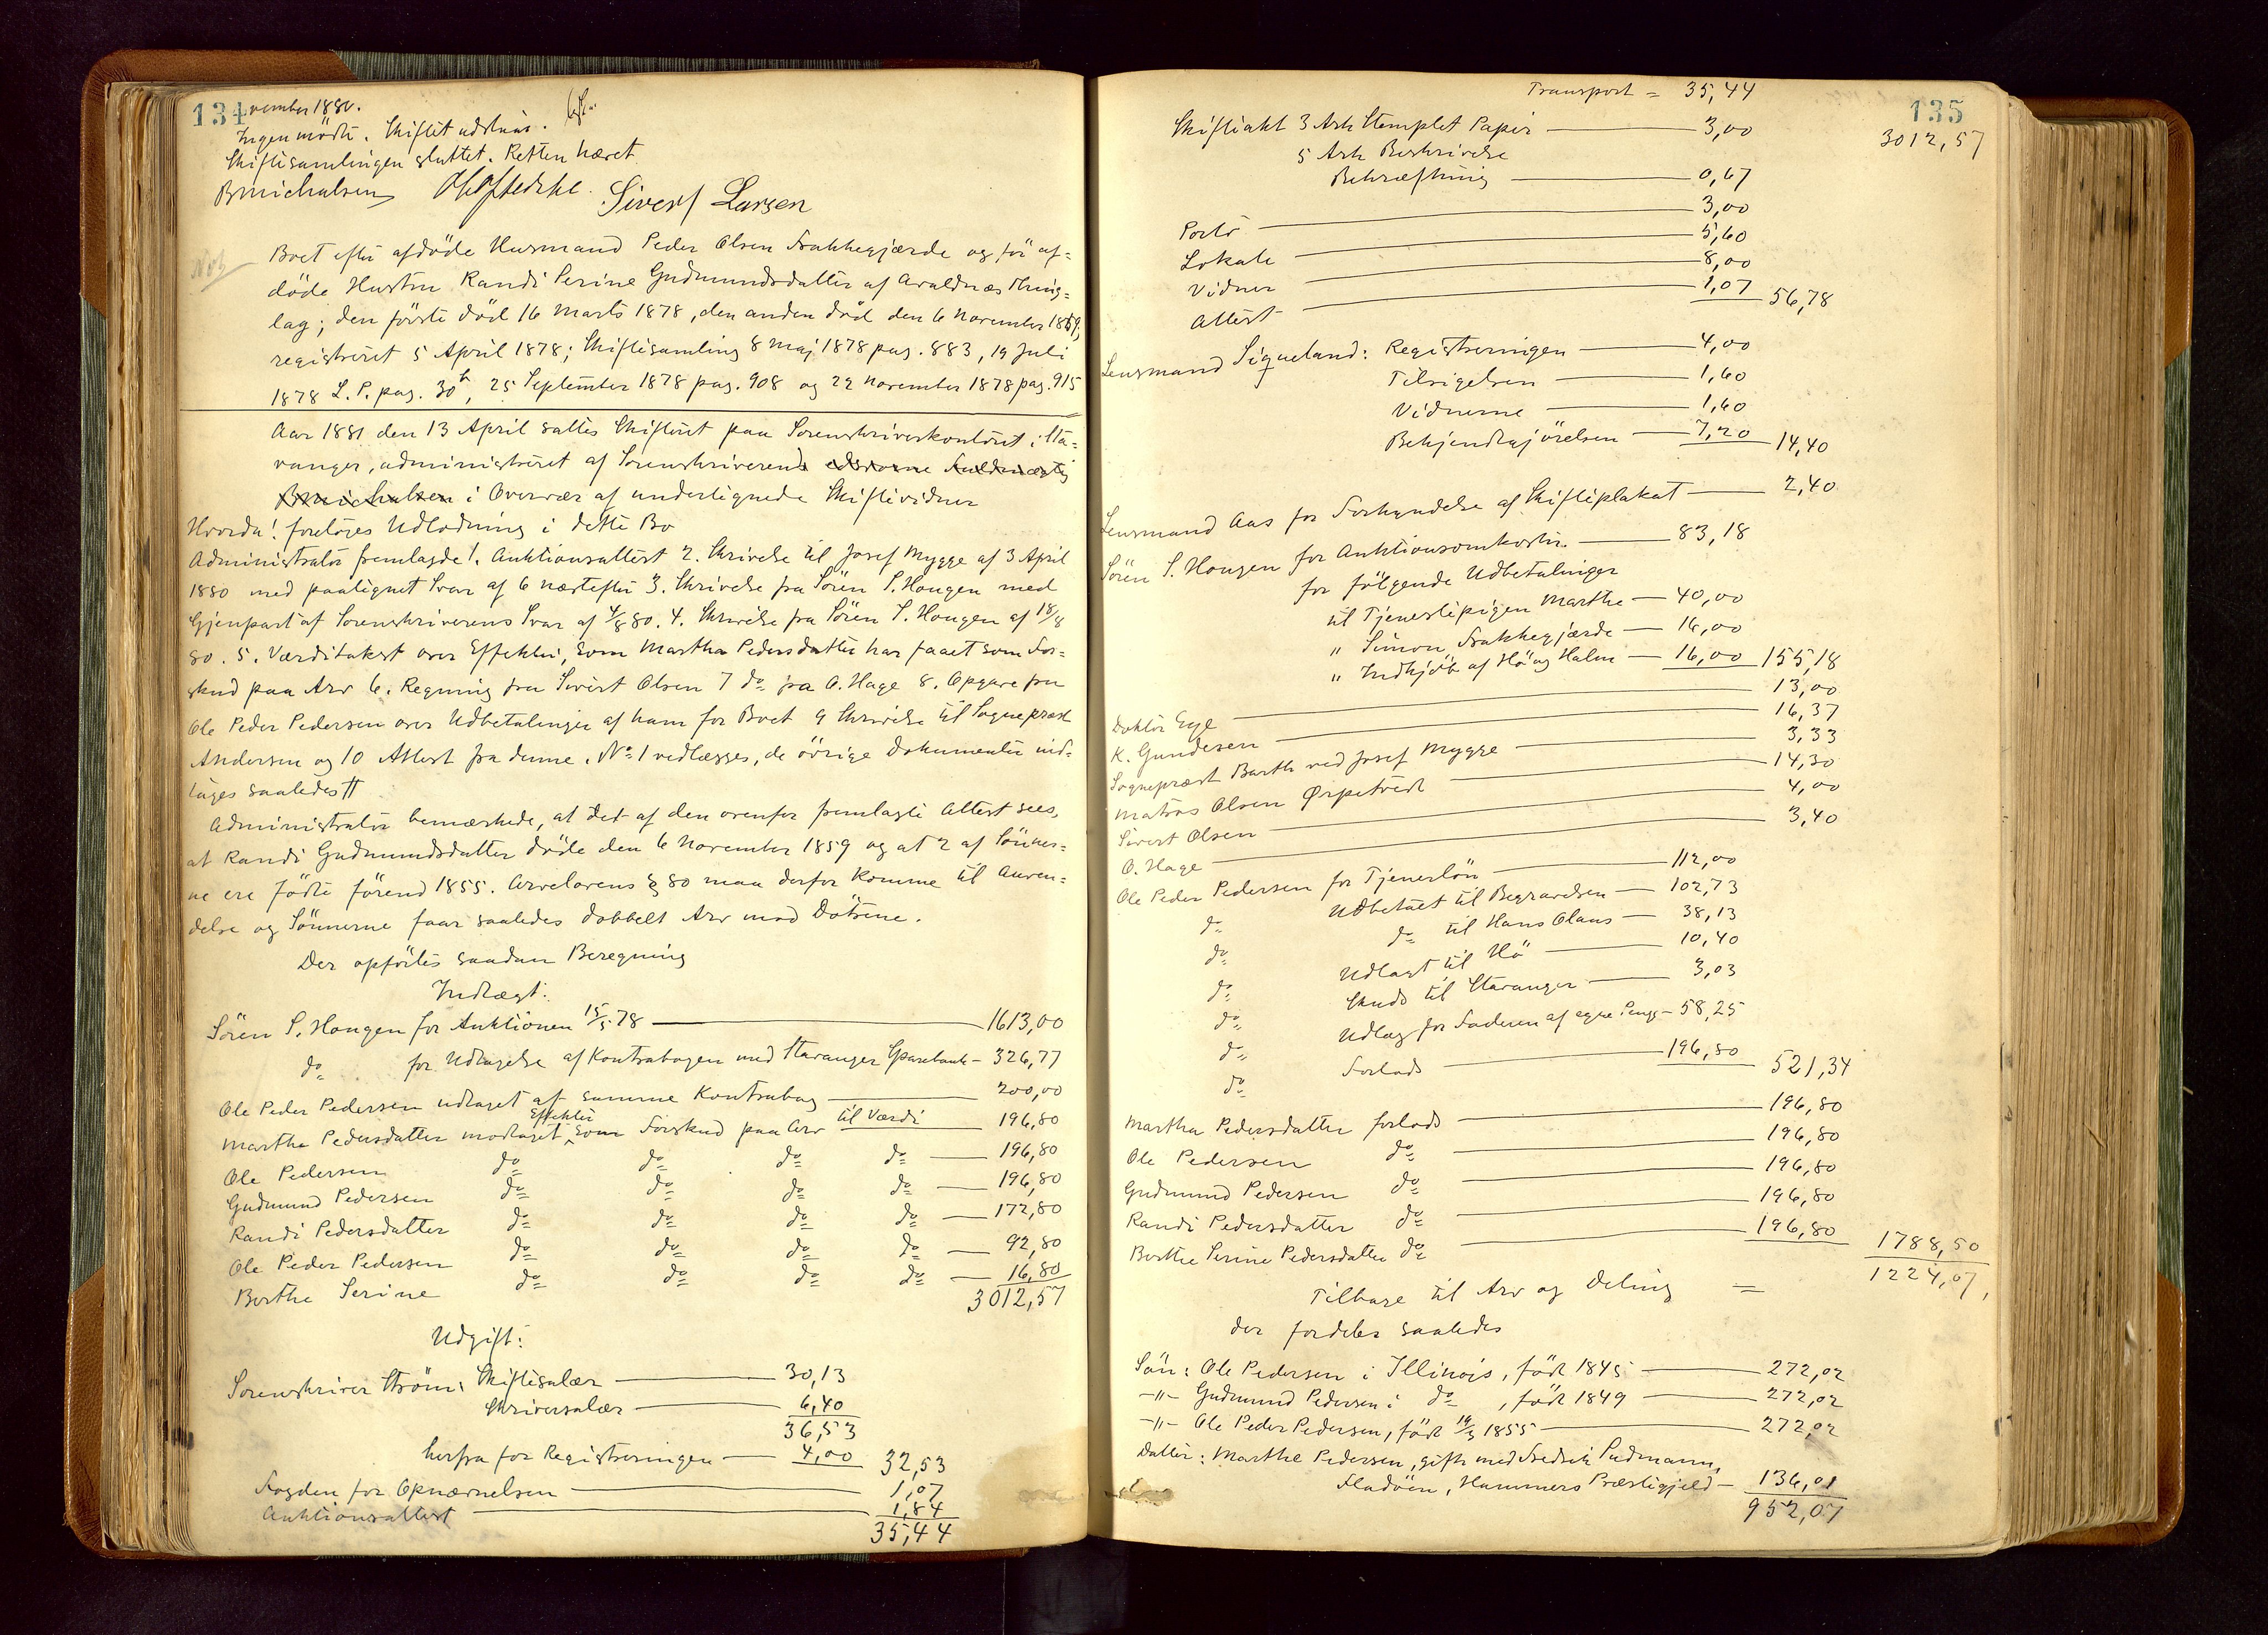 134
vember 1880.
Ingen mödte. Skiftet udstaar.
Skiftesamlingen sluttet. Retten hævet.
BMichalsen Sivert Larsen
Not
Boet efter afdöde Husmand Peder Olsen Frakkegjærde og för af=
döde Hustru Randi Serine Gudmundsdatter af Avaldnæs Thing=
lag; den förste död 16 Marts 1878, den anden död den 6 November 1859,
registreret 5 April 1878; Skiftesamling 8 Maj 1878 pag. 883, 19 Juli
1878 L. P. pag. 30b, 25 September 1878 pag. 908 og 22 November 1878 pag. 915
Aar 1881 den 13 April sattes Skifteret paa Sorenskriverkontoret i Sta=
vanger, administreret af Sorenskriverens edsvorne Fuldmægtig
BMichalsen i Overvær af undertegnede Skiftevidner
Hvorda! foretoges Udlodning i dette Bo
Administrator fremlagde 1. Auktionsattest 2. Skrivelse til Josef Mygge af 3 April
1880 med paategnet Svar af 6 næstefter 3. Skrivelse fra Sören S. Hougen med
Gjenpart af Sorenskriverens Svar af 4/8 80. 4. Skrivelse fra Sören S. Hougen af 18/8
80. 5. Værditakst over Effekter, som Martha Pedersdatter har faaet som For=
skud paa Arv 6. Regning fra Sivert Olsen 7 do fra O. Hage 8. Opgave fra
Ole Peder Pedersen over Udbetalinger af ham for Boet 9 Skrivelse til Sognepræst
Andersen og 10 Attest fra denne. No 1 vedlægges, de övrige Dokumenter ind=
tages saaledes
Administrator bemærkede, at det af den ovenfor fremlagte Attest sees,
at Randi Gudmundsdatter döde den 6 November 1859 og at 2 af Sönner=
ne ere födte förend 1855. Arvelovens § 80 maa derfor komme til Anven=
delse og Sönnerne faar saaledes dobbelt Arv mod Dötrene.
Der opförtes saadan Beregning
Indtægt:
Sören S. Hougen for Auktionen 15/5 78 1613,00
do for Udtagelse af Kontrabogen med Stavanger Sparebank - 326,77
Ole Peder Pedersen udtaget af samme Kontrabog 200,00
Martha Pedersdatter modtaget Effekter som Forskud paa Arv til Værdi 196,80
Ole Pedersen do do do do 196,80
Gudmund Pedersen do do do do 196,80
Randi Pedersdatter do do do do 172,80
Ole Peder Pedersen do do do do 92,80
Berthe Serine do do do do 16,80
3012,57
Udgift:
Sorenskriver Ström: Skiftesalær 30,13
Skriversalær 6,40
36,53
herfra for Registreringen 4,00 32,53
Fogden for Opnævnelsen 1,07
Auktionsattest 1,84
35,44
135
Transport = 35,44
3012,57
Skifteakt 3 Ark Stemplet Papir 3,00
5 Ark Beskrivelse
Bekræftning 0,67
3,00
Porto 5,60
Lokale 8,00
Vidner 1,07 56,78
Attest
Lensmand Siqueland: Registreringen 4,00
Tilsigelsen 1,60
Vidnerne 1,60
Bekjendtgjörelsen 7,20 14,40
Lensmand Aas for Forkyndelse af Skifteplakat 2,40
Sören S. Hougen for Auktionsomkostn. 83,18
for fölgende Udbetalinger
til Tjenestepigen Marthe 40,00
" Simon Frakkegjærde 16,00
" Indkjöb af Hö og Halm 16,00 155,18
Doktor Eye 13,00
K. Gundersen 16,37
Sognepræst Barth ved Josef Mygge 3,33
Matros Olsen Ørpetvedt 14,30
Sivert Olsen 4,00
O. Hage 3,40
Ole Peder Pedersen for Tjenerlön 112,00
do Udbetalt til Begravelsen 102,73
do do til Hans Olaus 38,13
do Udlagt til Hö 10,40
do Skuds til Stavanger 3,03
do Udlæg for Faderen af egne Penge 58,25
do Forlods 196,80 521,34
Martha Pedersdatter forlods 196,80
Ole Pedersen do 196,80
Gudmund Pedersen do 196,80
Randi Pedersdatter do 196,80
Berthe Serine Pedersdatter do 196,80 1788,50
Tilbage til Arv og Deling = 1224,07,
der fordeles saaledes
Sön: Ole Pedersen i Illinois, född 1845 272,02
-"- Gudmund Pedersen i do, född 1849 272,02
-"- Ole Peder Pedersen, född 19/3 1855 272,02
Datter: Marthe Pedersen, gift med Fredrik Pedmann,
Fladöen, Hammers Præstegjeld 136,01
952,07